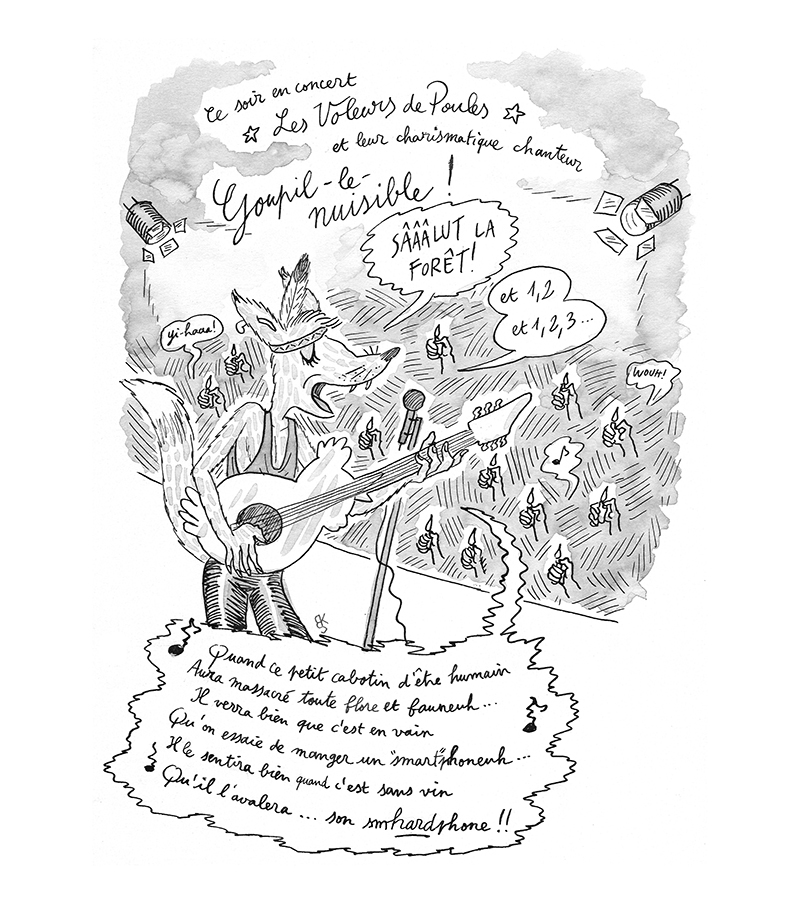 Ce soir en concert
Les Voleurs de Poules
et leur charismatique chanteur
Goupil-le-
nuisible !
SÂÂÂLUT LA
FORÊT!
et 1,2
et 1,2,3...
Yi-haaa!
WOUH!
BK
Quand ce petit cabotin d'être humain
Aura massacré toute flore et fauneuh...
Il verra bien que c'est en vain
Qu'on essaie de manger un "smart"phoneuh...
Il le sentira bien quand c'est sans vin
Qu'il l'avalera... son smhardphone !!